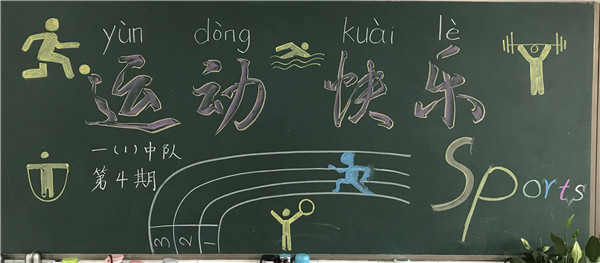 yùn dòng kuài lè
运动快乐
一(1)中队
第4期
Sports
3 2 1